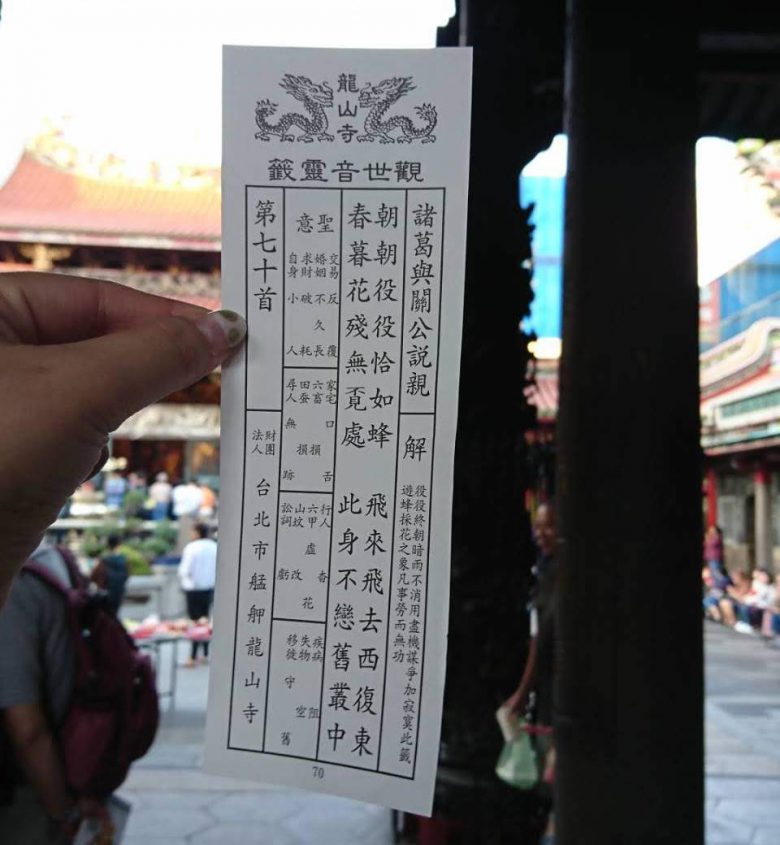 龍山寺
觀世音靈籤
諸葛與關公説親
解
役役終朝暗雨不消用盡機謀爭加寂寞此籤
遊蜂採花之象凡事勞而無功
朝朝役役恰如蜂 飛來飛去西復東
春暮花殘無覔處 此身不戀舊叢中
聖意
交易 反覆
婚姻 不久長
求財 破耗
自身 小人
家宅 口舌
六畜 損
田蚕 損
尋人 無跡
行人 杳
六甲 虛花
山坟 改
訟詞 虧
疾病 阻
失物 空
移徙 守舊
第七十首
財團法人 台北市艋舺龍山寺
70